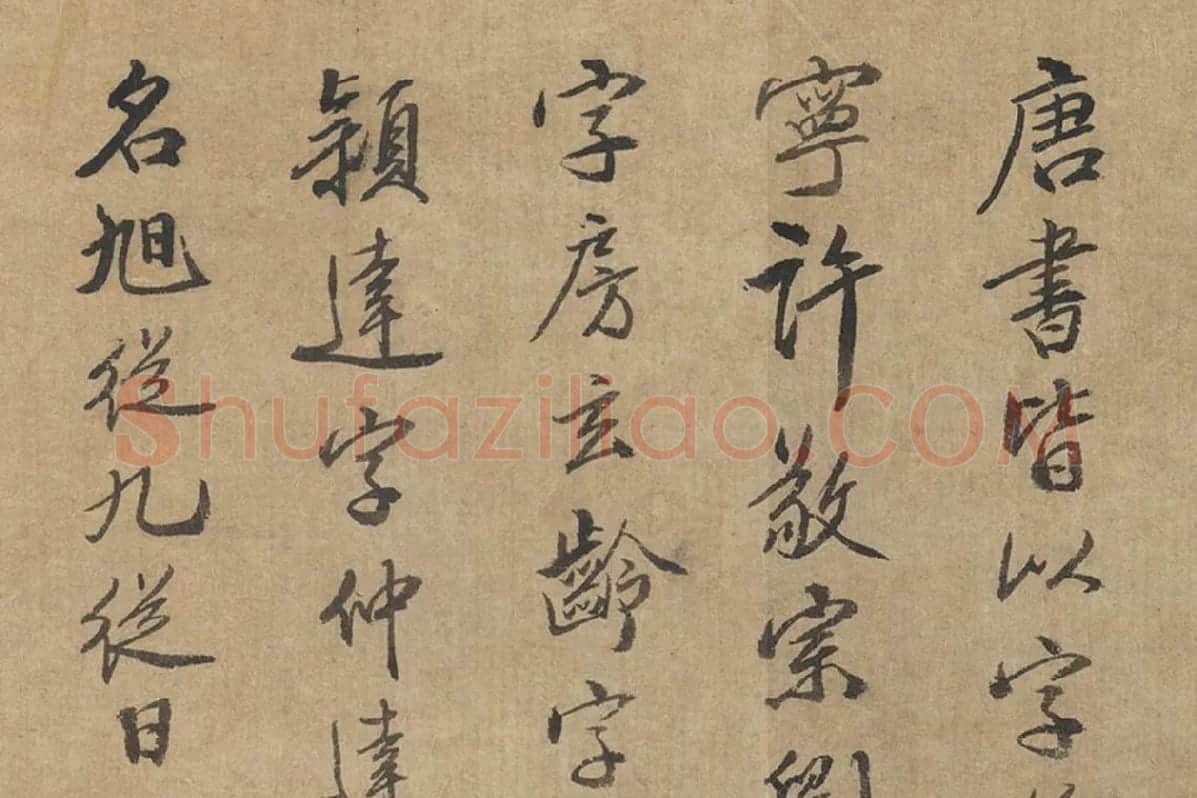 唐書皆以字
寧許敬宗劉
字房玄齡字
穎達字仲達
名旭從九從日
Shufaziliao.COM